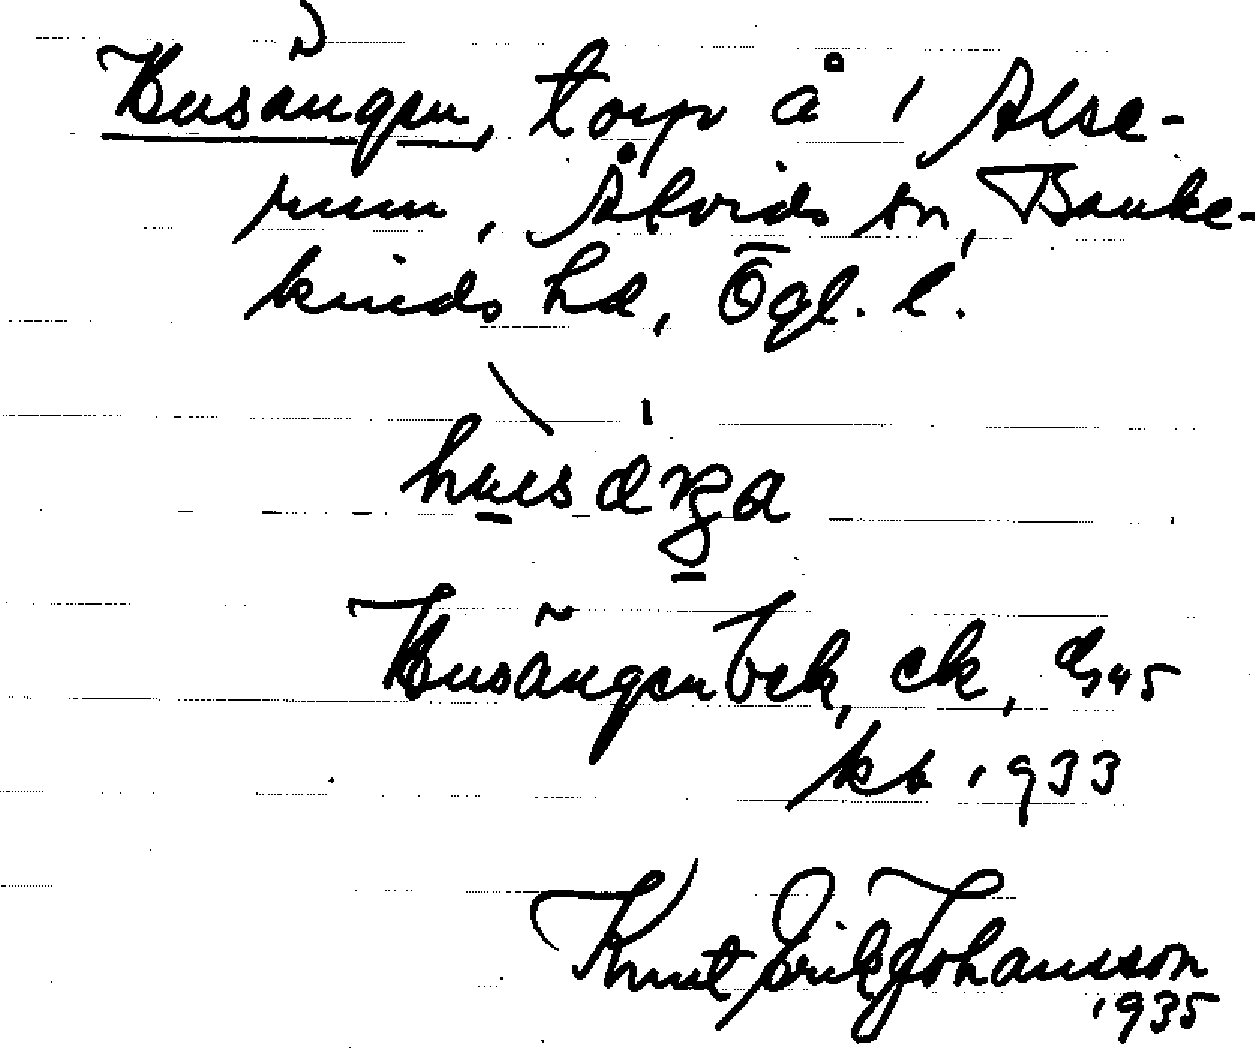 Husängen, torp å 1 Alse-
rum, Åtvids sn, Banke-
kinds hd, Ögl. l.
Husängen bek, ek,
kb 1933
Knut Erik Johansson
1935